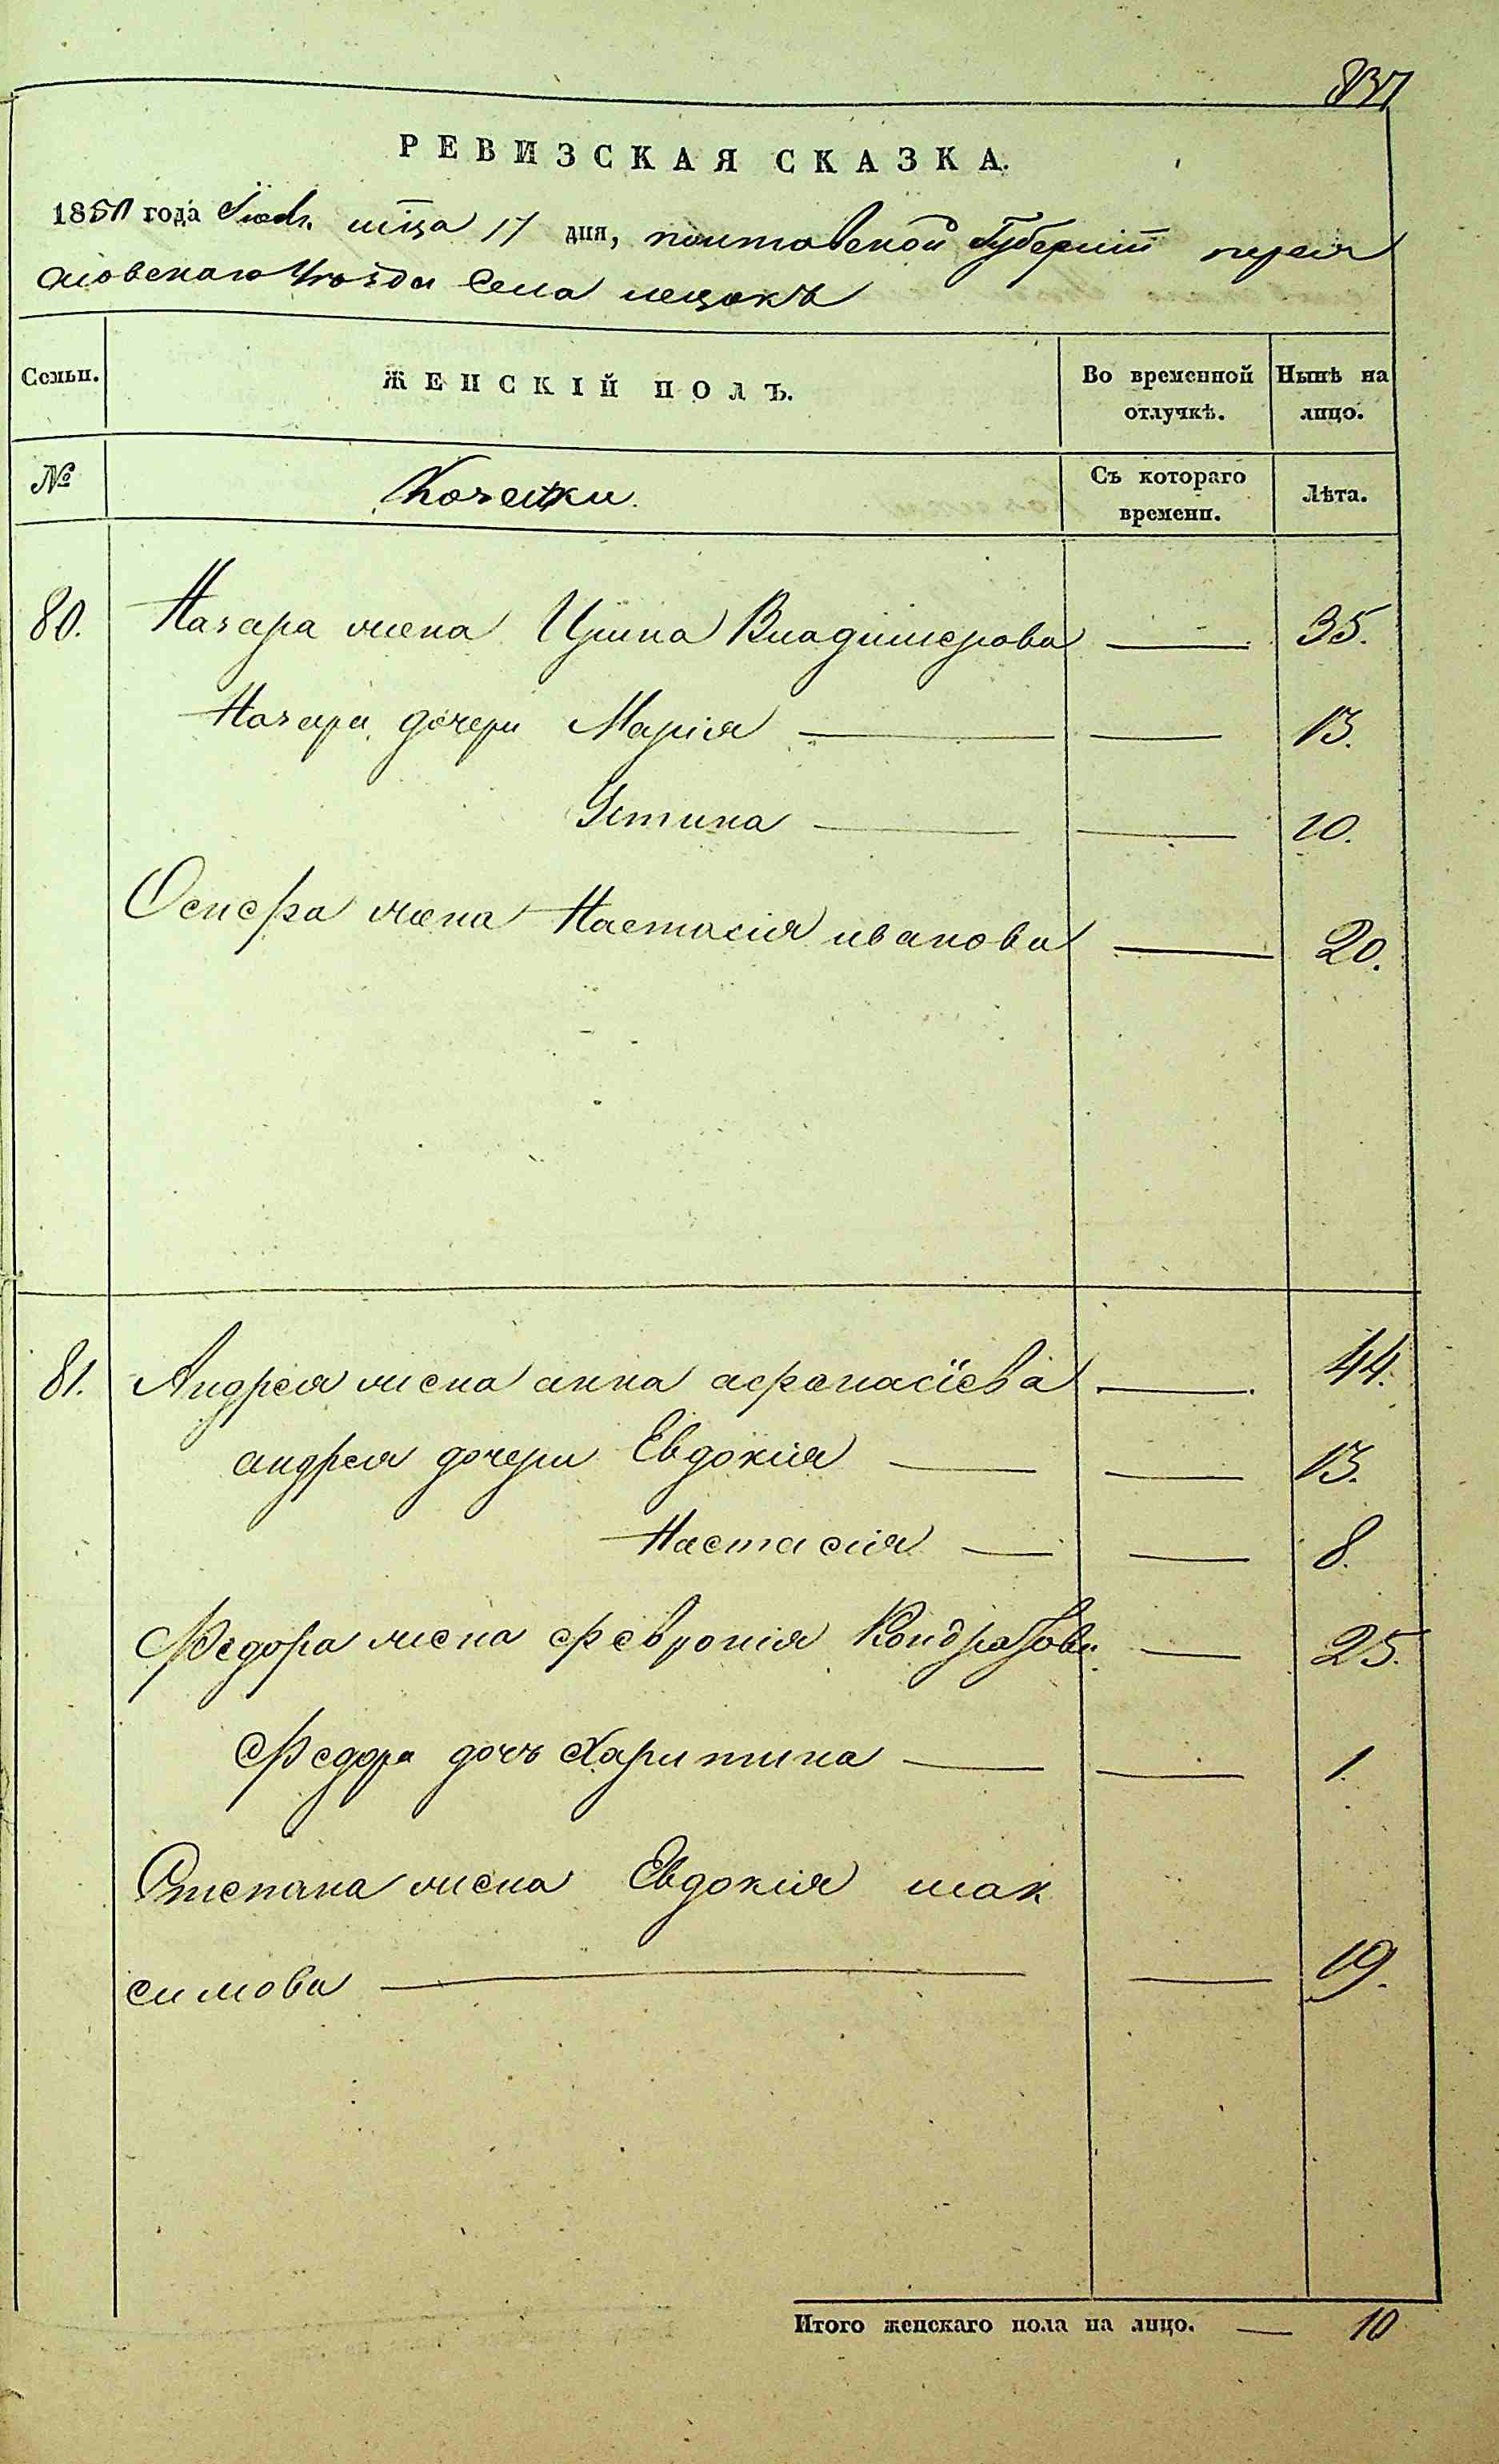 837
РЕВИЗСКАЯ СКАЗКА.
1850 года мца 17 дня, полтавской Губерніи перея
словскаго Уѣзда Села лецокъ
Семьи.
ЖЕНСКІЙ ПОЛЪ.
Во временной отлучкѣ.
Нынѣ на лицо.
№
Козачки.
Съ котораго времени.
Лѣта.
80. Назара жена Ирина Владимерова — 35.
Назара дочери Марія — — 13.
Устина — — 10.
Осифа жена Настасія иванова — 20.
81. Андрея жена анна афанасіева — 44.
андрея дочери Евдокія — — 13.
Настасія — — 8.
Федора жена февронія Кондратова — 25.
Федора дочь Харитина — — 1.
Степана жена Евдокія мак
симова — — 19.
Итого женскаго пола на лицо. — 10